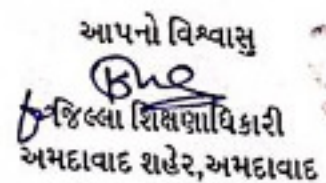 આપનો વિશ્વાસુ
જિલ્લા શિક્ષણાધિકારી
અમદાવાદ શહેર,અમદાવાદ